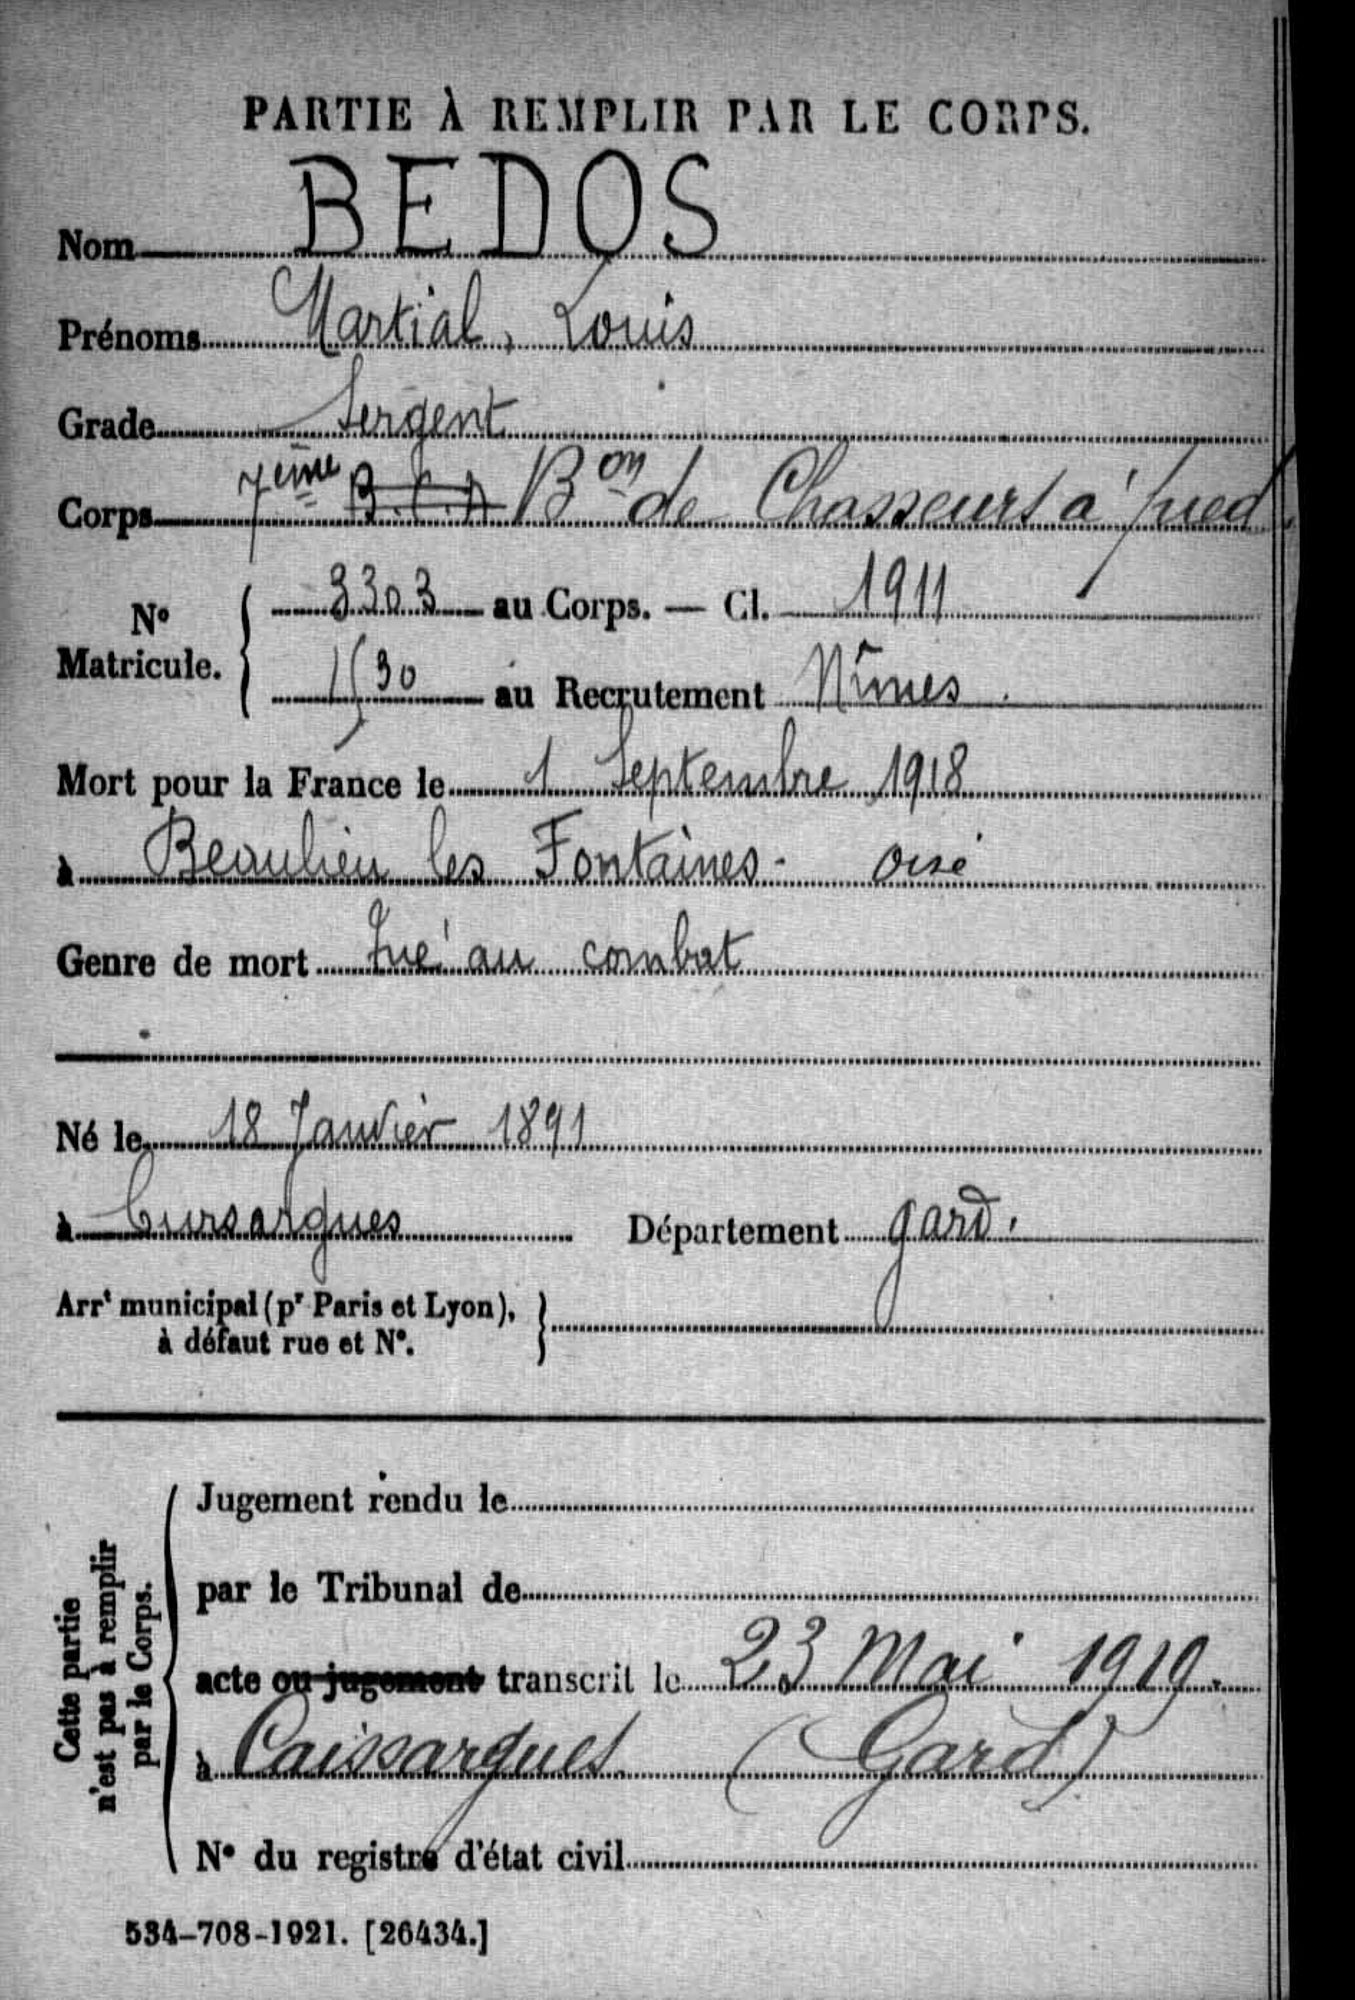 PARTIE À REMPLIR PAR LE CORPS.
Nom BEDOS
Prénoms Martial, Louis
Grade Sergent
Corps 7ème B.C.A Bon de Chasseurs à pied
N° Matricule. 3303 au Corps. — Cl. 1911
1530 au Recrutement Nîmes.
Mort pour la France le 1 Septembre 1918
à Beaulieu les Fontaines - oise
Genre de mort Tué au combat
Né le 18 Janvier 1891
à Cursargues Département gard.
Arrt municipal (pr Paris et Lyon),
à défaut rue et N°.
Cette partie
n'est pas à remplir
par le Corps.
Jugement rendu le
par le Tribunal de
acte ou jugement transcrit le 23 Mai 1919.
à Caissargues (Gard)
N° du registre d'état civil
534-708-1921. [26434.]